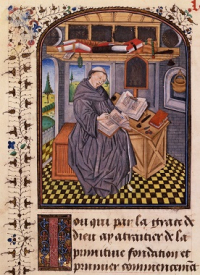 Iou qui par la grace de
dieu ay atraitier de la
primitiue fondation et
premier commencement